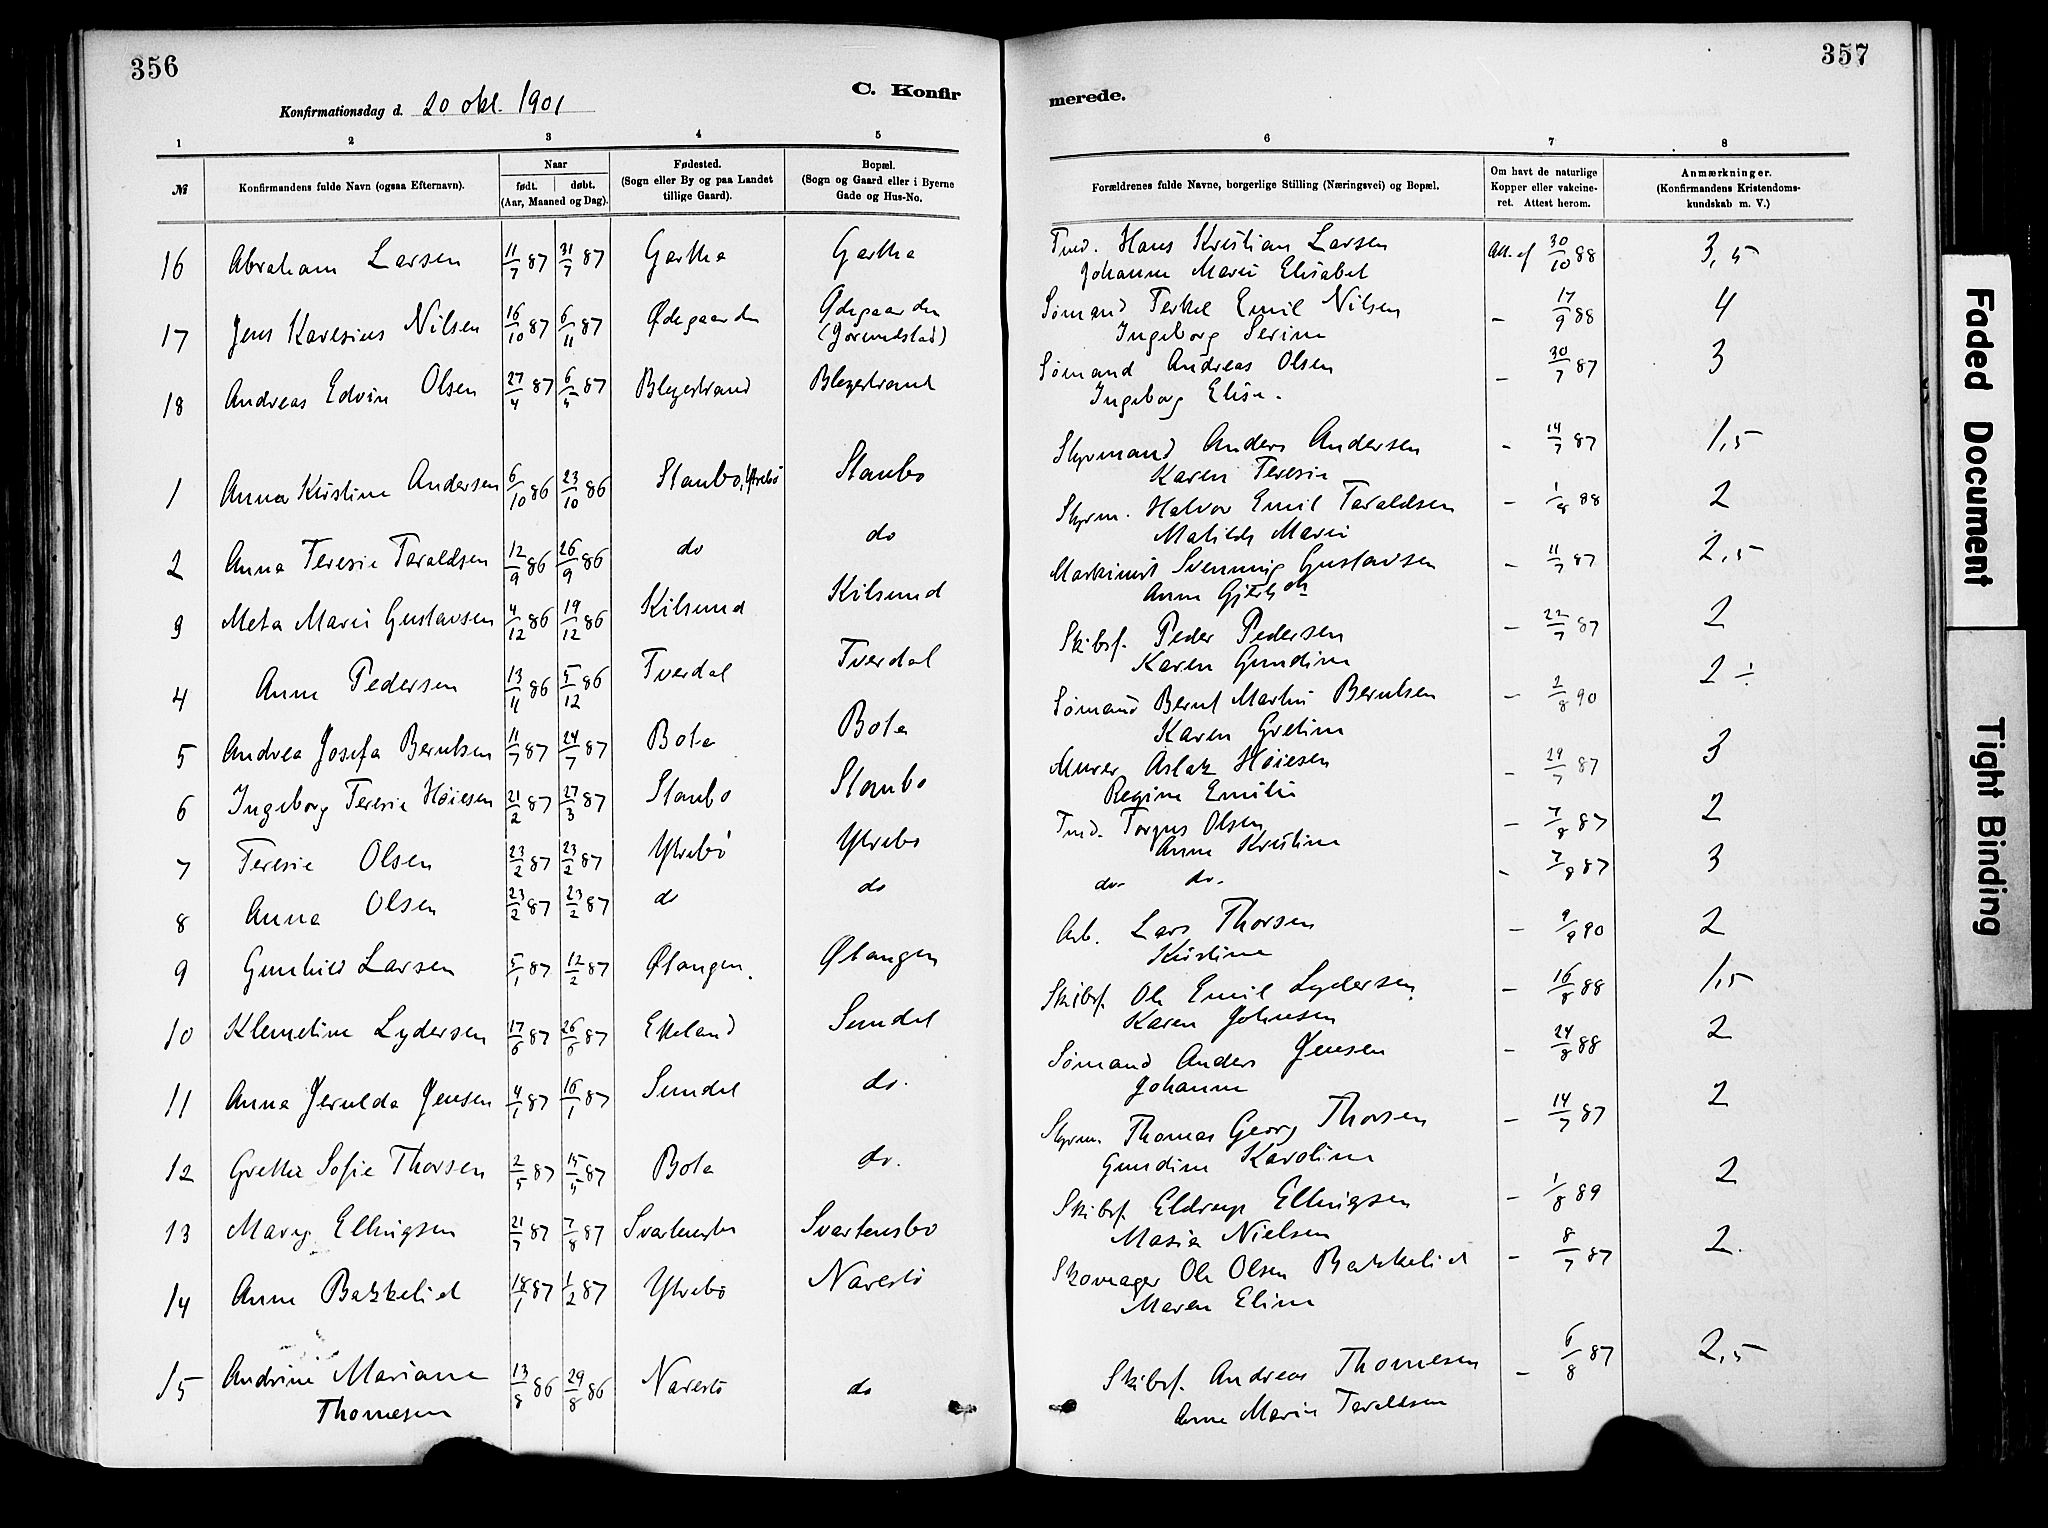 356
Konfirmationsdag d. 20 okt. 1901
C. Konfir
1 2 3 4 5
№
Konfirmandens fulde Navn (ogsaa Efternavn).
Naar
født. døbt.
(Aar, Maaned og Dag).
Fødested.
(Sogn eller By og paa Landet
tillige Gaard).
Bopæl.
(Sogn og Gaard eller i Byerne
Gade og Hus-No.
16 Abraham Larsen 11/7 87 31/7 87 Gartha Gartha
17 Jens Karesius Nilsen 16/10 87 6/11 87 Ødegaarden Ødegaarden
(Jorundstad)
18 Andreas Edvin Olsen 27/4 87 6/5 87
1 Anna Kristine Andersen 6/10 86 23/10 86 Staubo, Staubo
2 Anna Teresie Taraldsen 12/9 86 26/9 86 do do
3 Meta Marie Gustavsen 4/12 86 19/12 86 Kilsund Kilsund
4 Anne Pedersen 13/11 86 5/12 86 Tverdal Tverdal
5 Andrea Josefa Berntsen 11/7 87 24/7 87 Bota Bota
6 Ingeborg Teresie Høiesen 21/2 87 27/3 87 Staubo Staubo
7 Teresie Olsen 23/2 87 23/2 87 Ytrebø Ytrebø
8 Anna Olsen 23/2 87 23/2 87 do do
9 Gunhild Larsen 5/1 87 12/2 87 Østangen. Østangen
10 Klemetine Lydersen 17/6 87 26/6 87 Ekeland Sundet
11 Anna Jerulda Jensen 4/1 87 16/1 87 Sundet do.
12 Grethe Sofie Thorsen 2/5 87 15/5 87 Bota do.
13 Mary Ellingsen 21/7 87 7/8 87 Svartensbo Svartensbo
14 Anne Bakkelid 18/1 87 1/2 87 Ytrebø Narestø
15 Andrine Mariane 13/8 86 29/8 86 Narestø do
Thomesen
357
merede.
6 7 8
Forældrenes fulde Navne, borgerlige Stilling (Næringsvei) og Bopæl.
Om havt de naturlige
Kopper eller vakcine-
ret. Attest herom.
Anmærkninger.
(Konfirmandens Kristendoms-
kundskab m. V.)
Tmd. Hans Kristian Larsen Att. af 30/10 88 3,5
Johanne Marie Elisabet
Sømand Terkel Emil Nilsen – 17/9 88 4
Ingeborg Serine
Sømand Andreas Olsen – 30/7 87 3
Ingeborg Elise.
Styrmand Anders Andersen – 14/7 87 1,5
Karen Teresie
Styrm. Halvor Emil Taraldsen – 1/8 88 2
Matilde Marie
Maskinist Svenning Gustavsen – 11/7 87 2,5
Anne
Skibsf. Peder Pedersen – 22/7 87 2
Karen Gundine
Sømand Bernt Martin Berntsen – 2/8 90 2 ÷
Karen Gretine
Murer Aslak Høiesen – 29/7 87 3
Regine Emilie
Tmd. Torgus Olsen – 7/8 87 2
Anne Kristine
do. do. – 7/8 87 3
Arb. Lars Thorsen – 9/9 90 2
Kristine
Skibsf. Ole Emil Lydersen – 16/8 88 1,5
Karen Johnsen
Sømand Anders Jensen – 24/8 88 2
Johanne
Styrm. Thomas Georg Thorsen – 14/7 87 2
Gundine Karoline
Skibsf. Eldrup Ellingsen – 1/8 89 2
Masia Nielsen
Skomager Ole Olsen Bakkelid – 8/7 87 2.
Maren Eline
Skibsf. Andreas Thomesen – 6/8 87 2,5
Anne Marie Taraldsen
Faded Document
Tight Binding